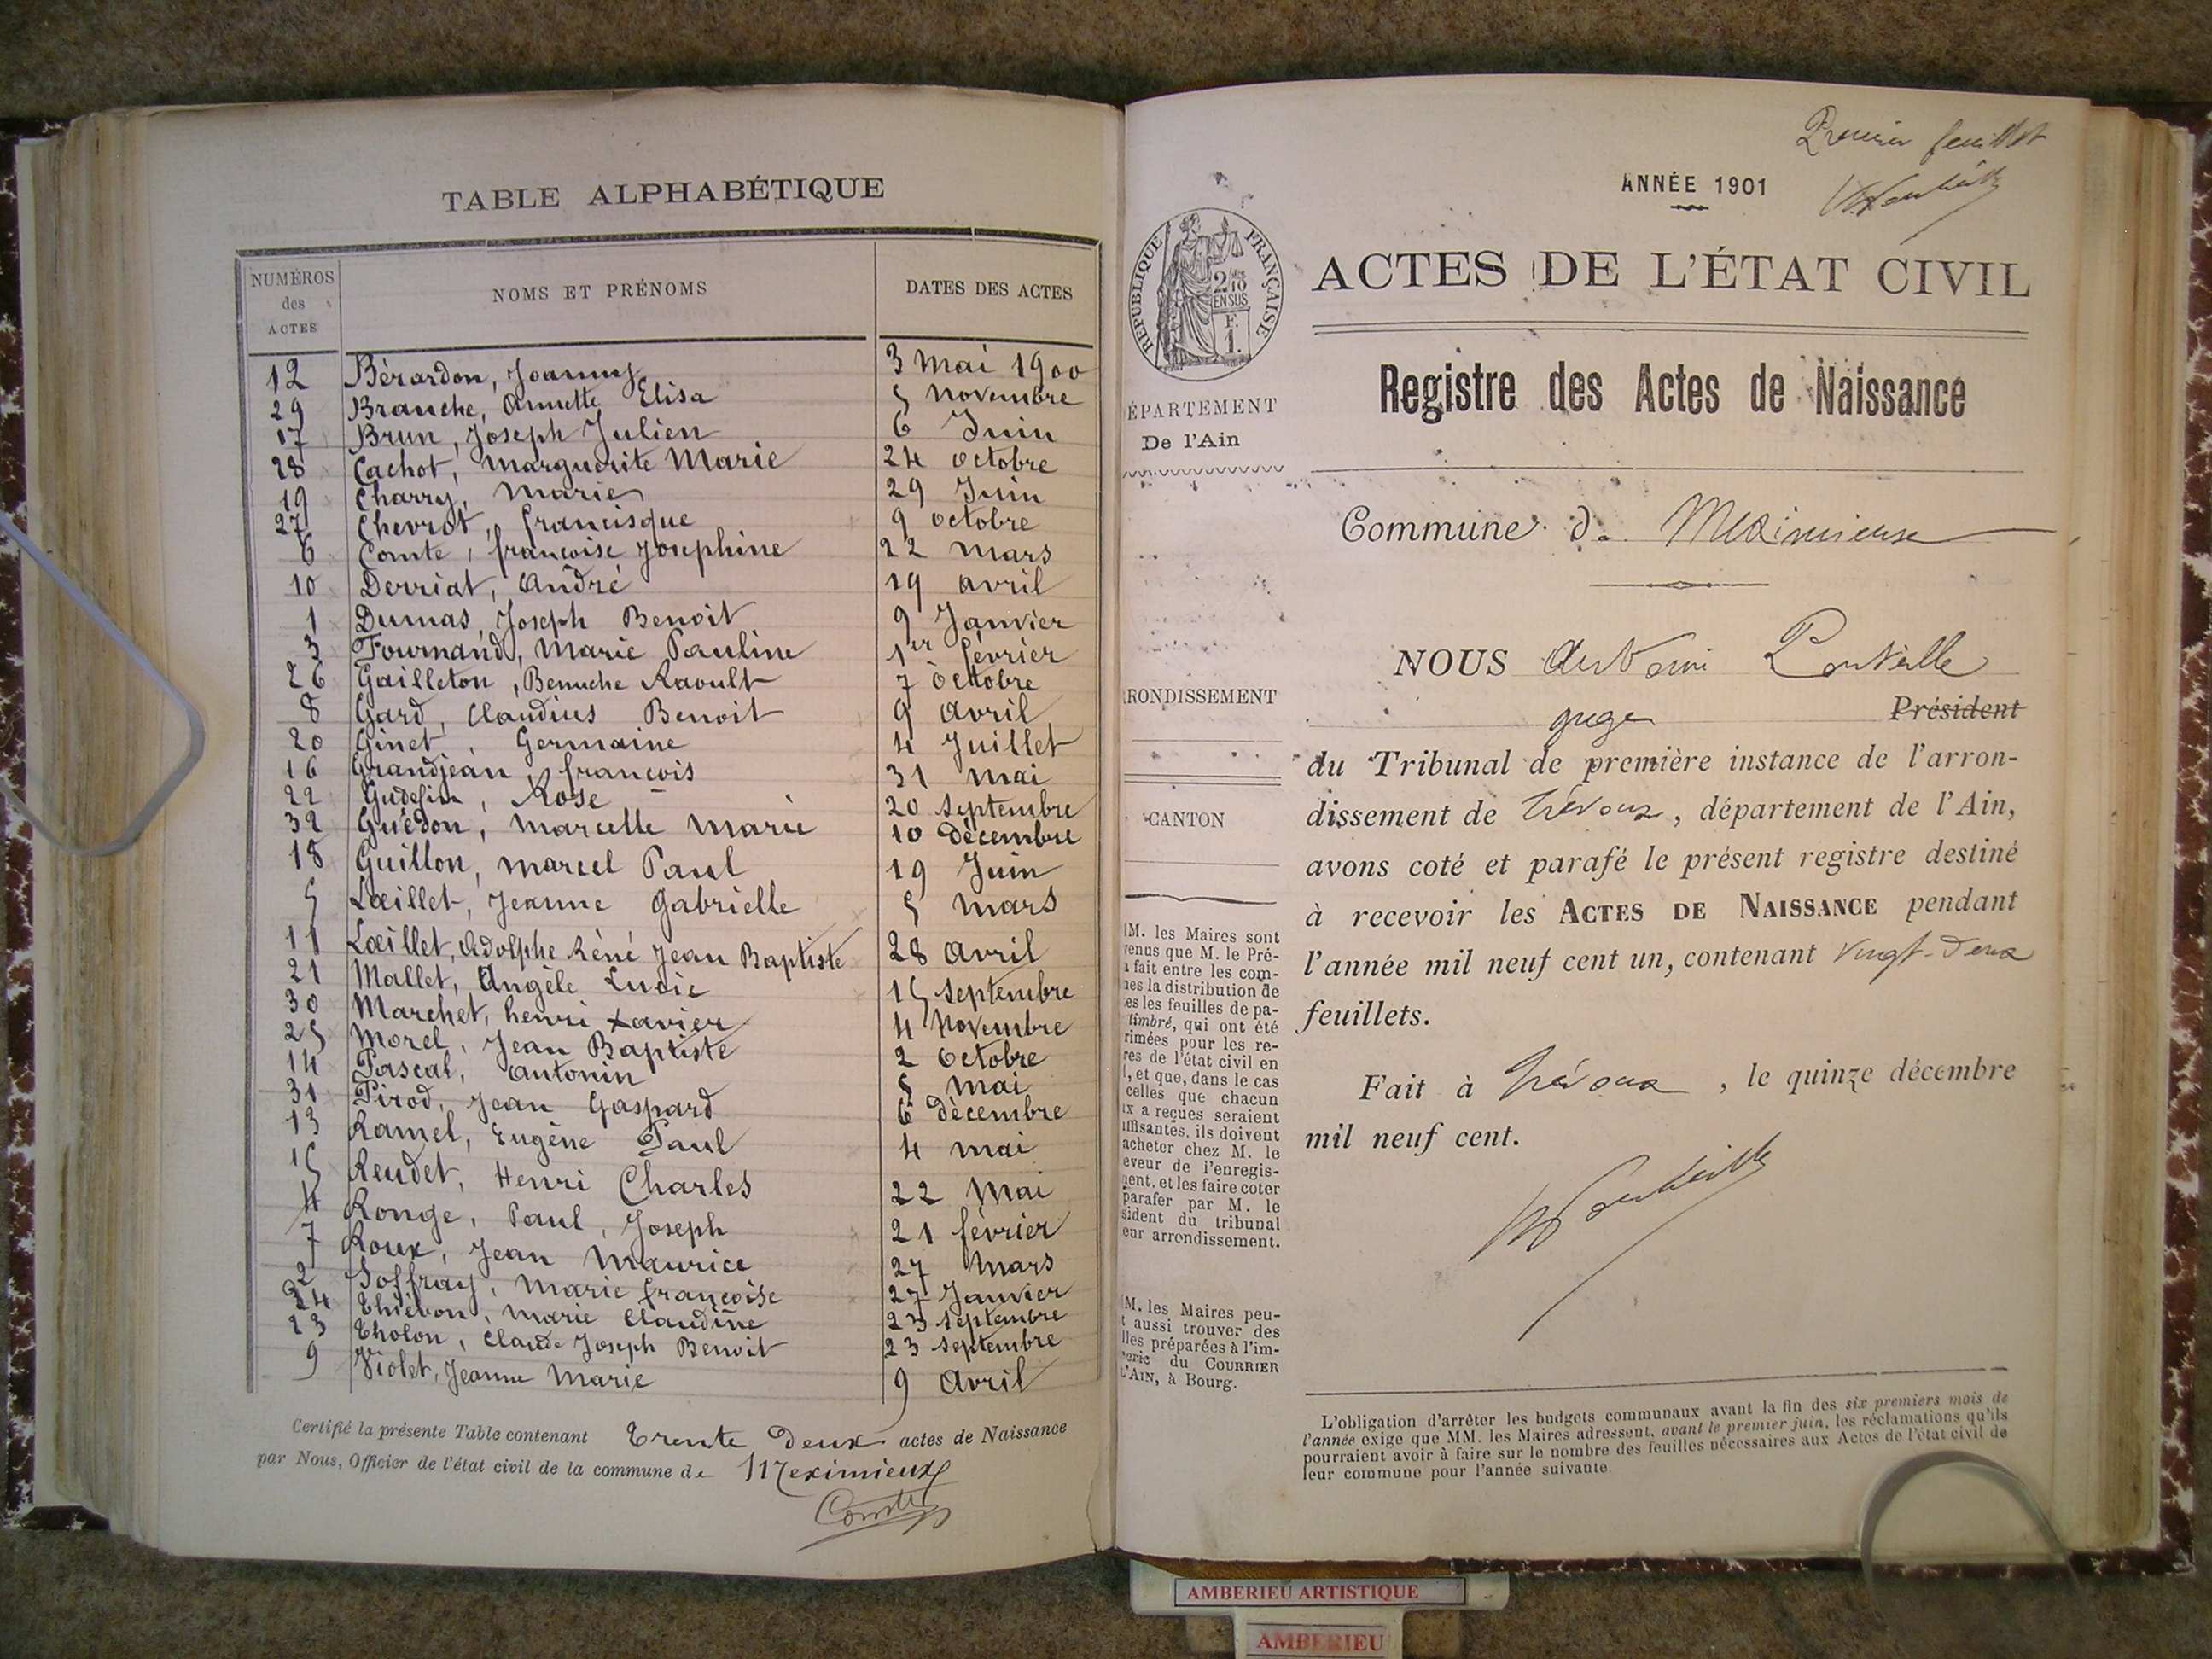 TABLE ALPHABÉTIQUE
NUMÉROS des ACTES NOMS ET PRÉNOMS DATES DES ACTES
12 Bérardon, Joanny 3 Mai 1900
29 Branche, Annette Elisa 5 Novembre
17 Brun, Joseph Julien 6 Juin
28 Cachot, Marguerite Marie 24 octobre
19 Charry, Marie 29 Juin
27 Chevrot, Francisque 9 octobre
6 Comte, françoise Josephine 22 mars
10 Derriat, André 19 avril
1 Dumas, Joseph Benoit 9 Janvier
3 Fournand, Marie Pauline 1er février
26 Gailleton, Raoult 7 octobre
8 Gard, Claudius Benoit 9 avril
20 Ginet, Germaine 4 Juillet
16 Grandjean, françois 31 mai
22 Rose 20 septembre
32 Guédon, Marcelle Marie 10 décembre
18 Guillon, Marcel Paul 19 Juin
5 Lœillet, Jeanne Gabrielle 5 mars
11 Lœillet, Adolphe Réné Jean Baptiste 28 avril
21 Mallet, Angèle Lucie 15 septembre
30 Marchet, henri Xavier 4 Novembre
25 Morel, Jean Baptiste 2 octobre
14 Pascal, Antonin 5 mai
31 Pirod, Jean Gaspard 6 décembre
13 Ramel, Eugène Paul 4 mai
15 Reudet, Henri Charles 22 Mai
4 Ronge, Paul, Joseph 21 février
7 Roux, Jean Maurice 27 Mars
2 Soffray, Marie françoise 27 Janvier
24 Thiévon, Marie Claudine 23 septembre
23 Tholon, Claude Joseph Benoit 23 septembre
9 Violet, Jeanne Marie 9 Avril
Certifié la présente Table contenant Trente deux actes de Naissance
par Nous, Officier de l'état civil de la commune de Meximieux
Premier feuillet
ANNÉE 1901
RÉPUBLIQUE FRANÇAISE
2/10
EN SUS
F.
1.
ACTES DE L'ÉTAT CIVIL
Registre des Actes de Naissance
ÉPARTEMENT
De l'Ain
RONDISSEMENT
CANTON
M. les Maires sont
venus que M. le Pré-
a fait entre les com-
nes la distribution de
es les feuilles de pa-
timbré, qui ont été
rimées pour les re-
res de l'état civil en
l, et que, dans le cas
celles que chacun
ux a reçues seraient
uffisantes, ils doivent
acheter chez M. le
eveur de l'enregis-
nent, et les faire coter
parafer par M. le
sident du tribunal
eur arrondissement.
M. les Maires peu-
t aussi trouver des
lles préparées à l'im-
erie du COURRIER
L'AIN, à Bourg.
Commune de Meximieux
NOUS Antoine
juge Président
du Tribunal de première instance de l'arron-
dissement de Trévoux, département de l'Ain,
avons coté et parafé le présent registre destiné
à recevoir les ACTES DE NAISSANCE pendant
l'année mil neuf cent un, contenant vingt-deux
feuillets.
Fait à Trévoux, le quinze décembre
mil neuf cent.
L'obligation d'arrêter les budgets communaux avant la fin des six premiers mois de
l'année exige que MM. les Maires adressent, avant le premier juin, les réclamations qu'ils
pourraient avoir à faire sur le nombre des feuilles nécessaires aux Actes de l'état civil de
leur commune pour l'année suivante.
AMBERIEU ARTISTIQUE
AMBERIEU